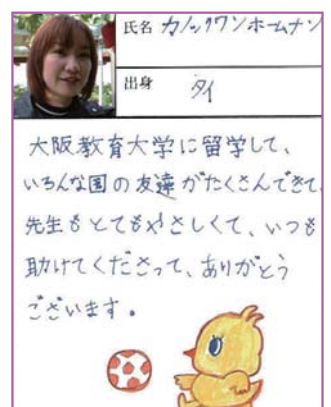 氏名 カノックワンホームナン
出身 タイ
大阪教育大学に留学して、
いろんな国の友達がたくさんできて、
先生もとてもやさしくて、いつも
助けてくださって、ありがとう
ございます。